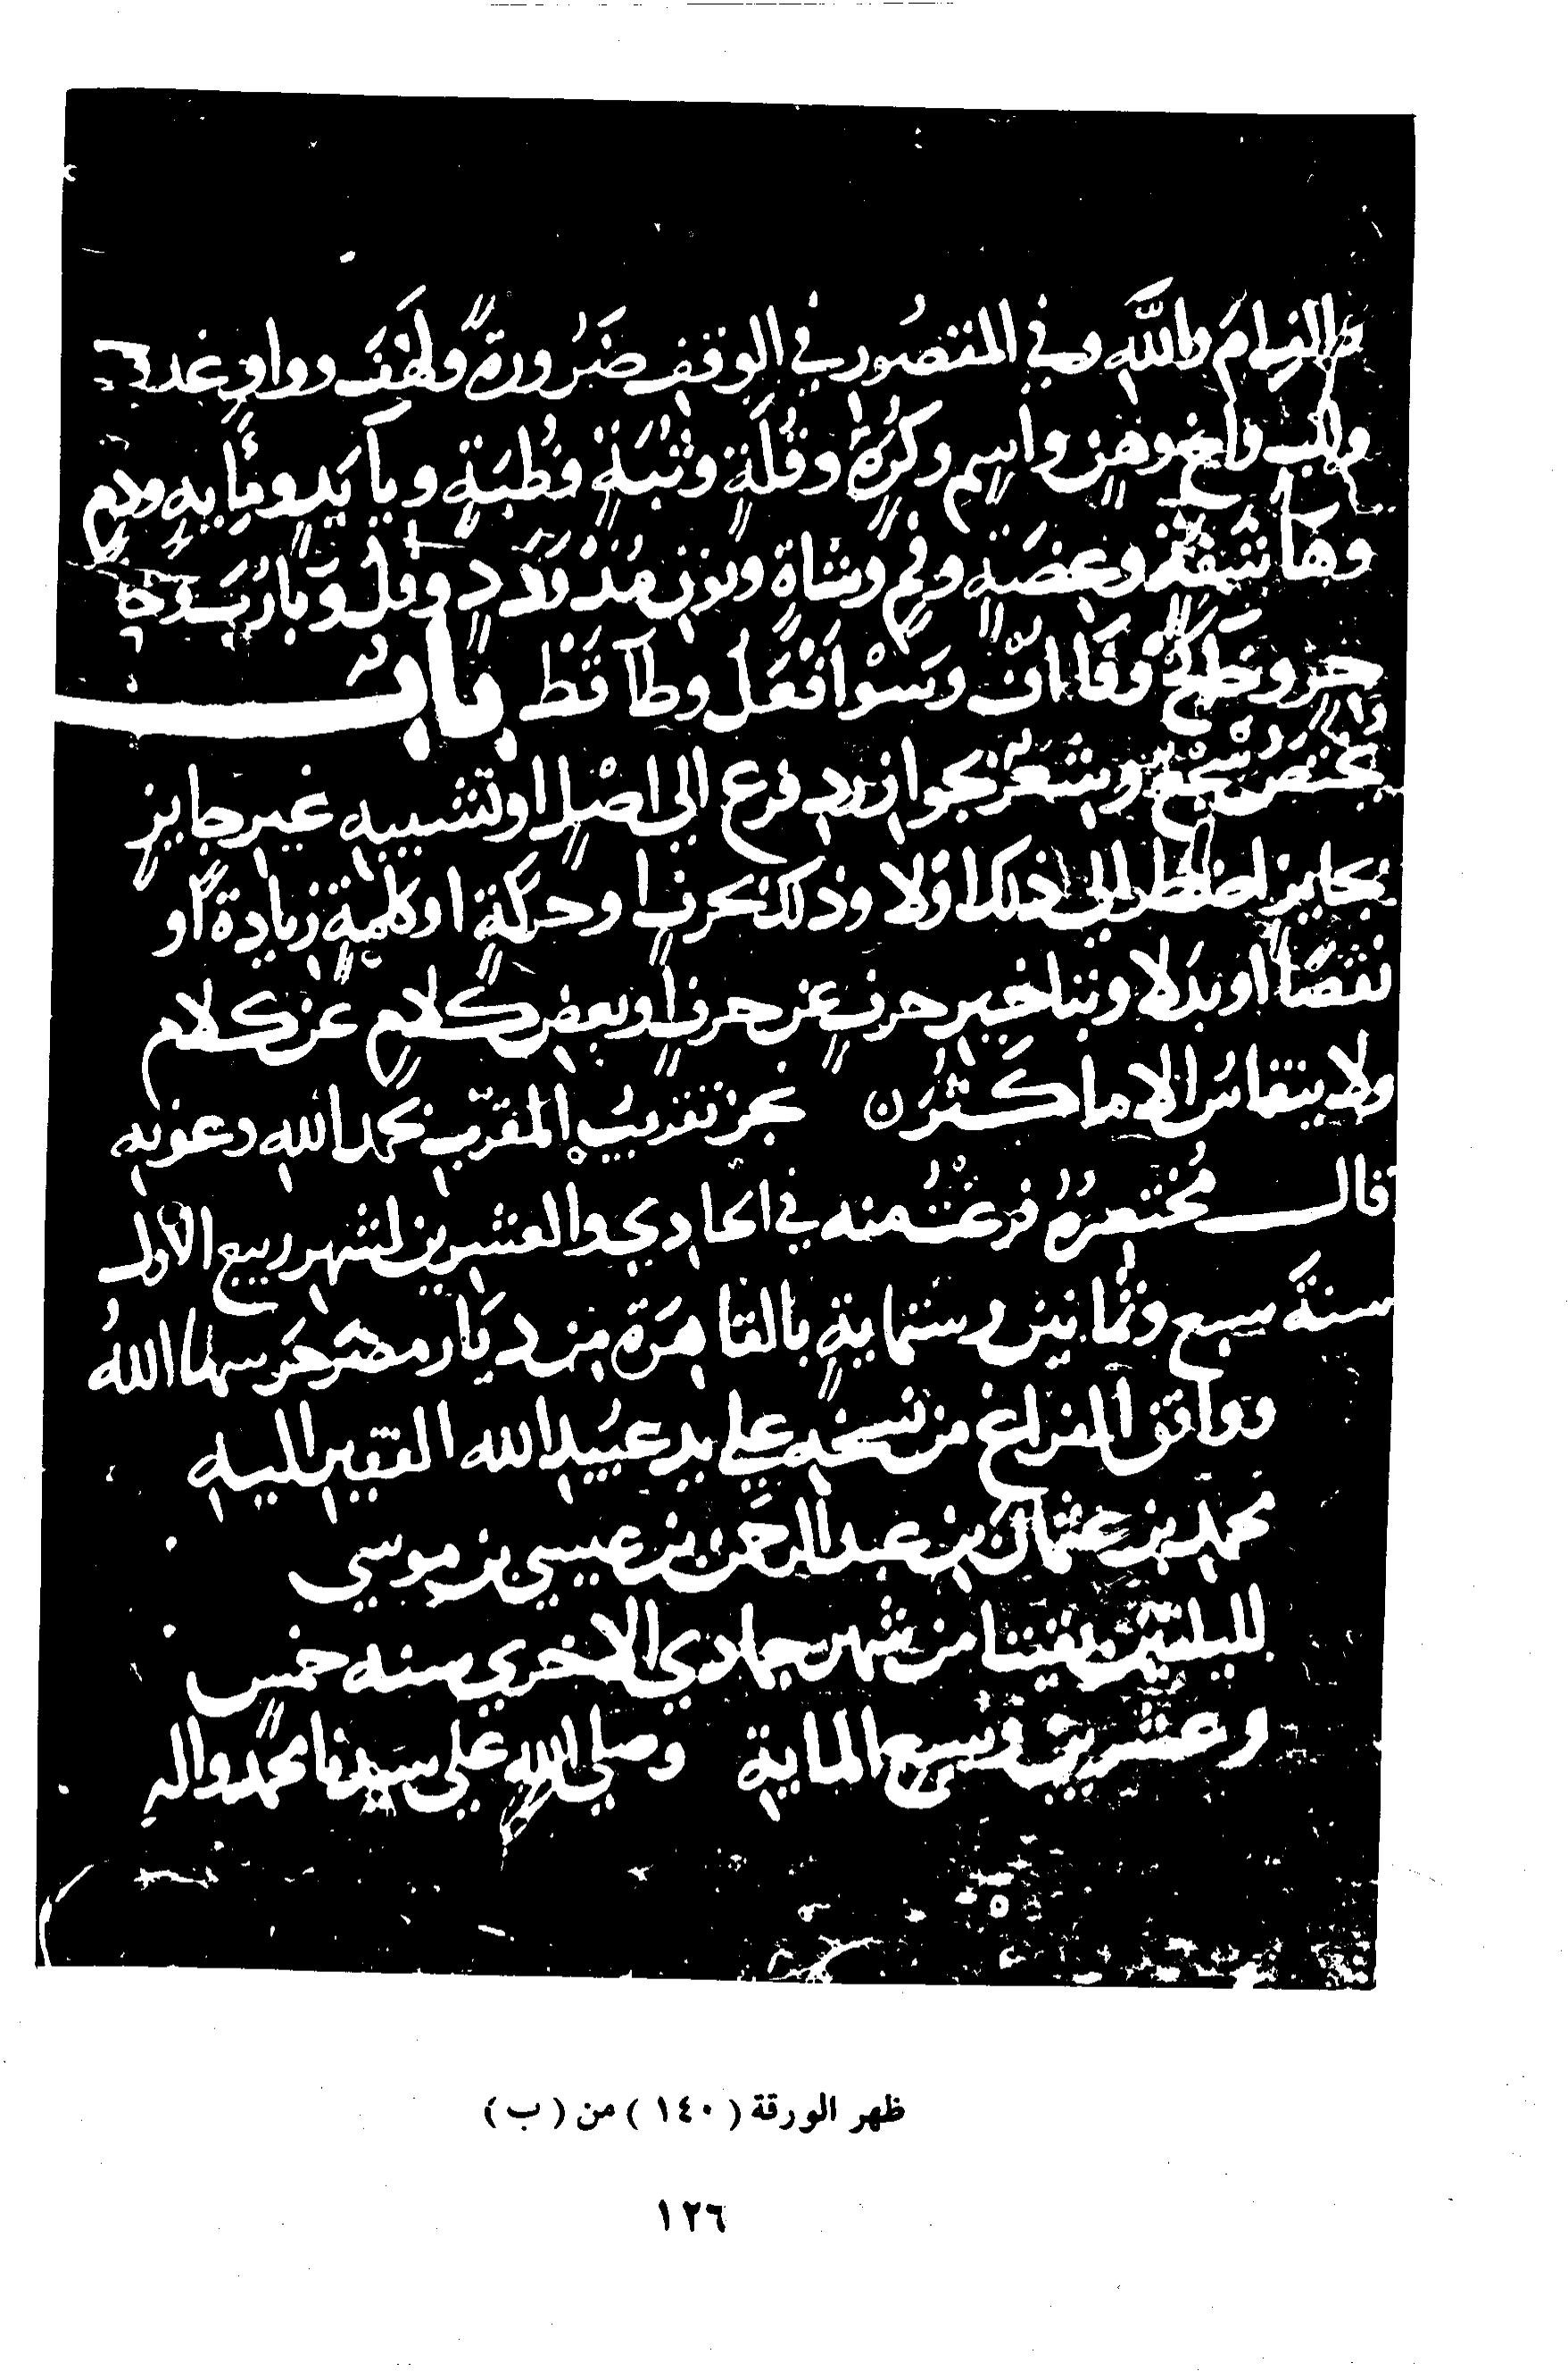 والله وفي المقصور في الوقف ضَرُورةً وواو غد
واخ وهن واسم وكُرَةٍ وقُلَةٍ وثُبَةٍ وظُبَةٍ ويا يد ومايه ودم
وها شفة وعضة وفم وشاة ونون مذ ودد وفل وبا رب وحا
حر وخا وفا اف وسو افعل وطا قط باب
يختص الشعر بجواز رد فرع الى اصل او تشبيه غير جايز
بجايز اضطر الى ذلك اولا وذلك بحرف او حركة او كلمة زيادة او
نقصًا او بدلا وبتاخير حرف عن حرف او بعض كلام عن كلام
ولا ينقاس الا ما كثر ن نجز تقريب المقرب بحمد الله وعونه
قال مختصره فرغت منه في الحادي والعشرين لشهر ربيع الاول
سنة سبع وثمانين وستماية بالقاهرة من ديار مصر حرسها الله
ووافق الفراغ من نسخه على يد عبيد الله الفقير اليه
محمد بن عثمان بن عبد الرحمن بن عيسى بن موسى
لليلتين بقيتا من شهر جمادي الاخري سنه خمس
وعشرين وسبع الماية وصلي الله علي سيدنا محمد واله
ظهر الورقة (١٤٠) من (ب)
١٢٦